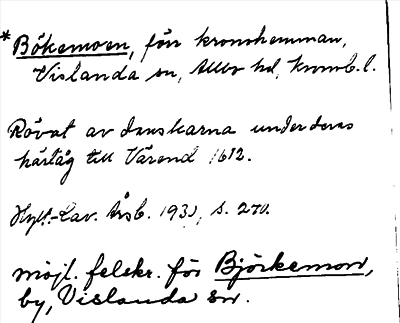 *Bökemoen, förr kronohemman,
Vislanda sn, Allbo hd, Kronob. l.
Rövat av danskarna under deras
härtåg till Värend 1612.
Hylt.-Cav. Årsb. 1933, s. 270.
möjl. felskr. för Björkemon,
by, Vislanda sn.